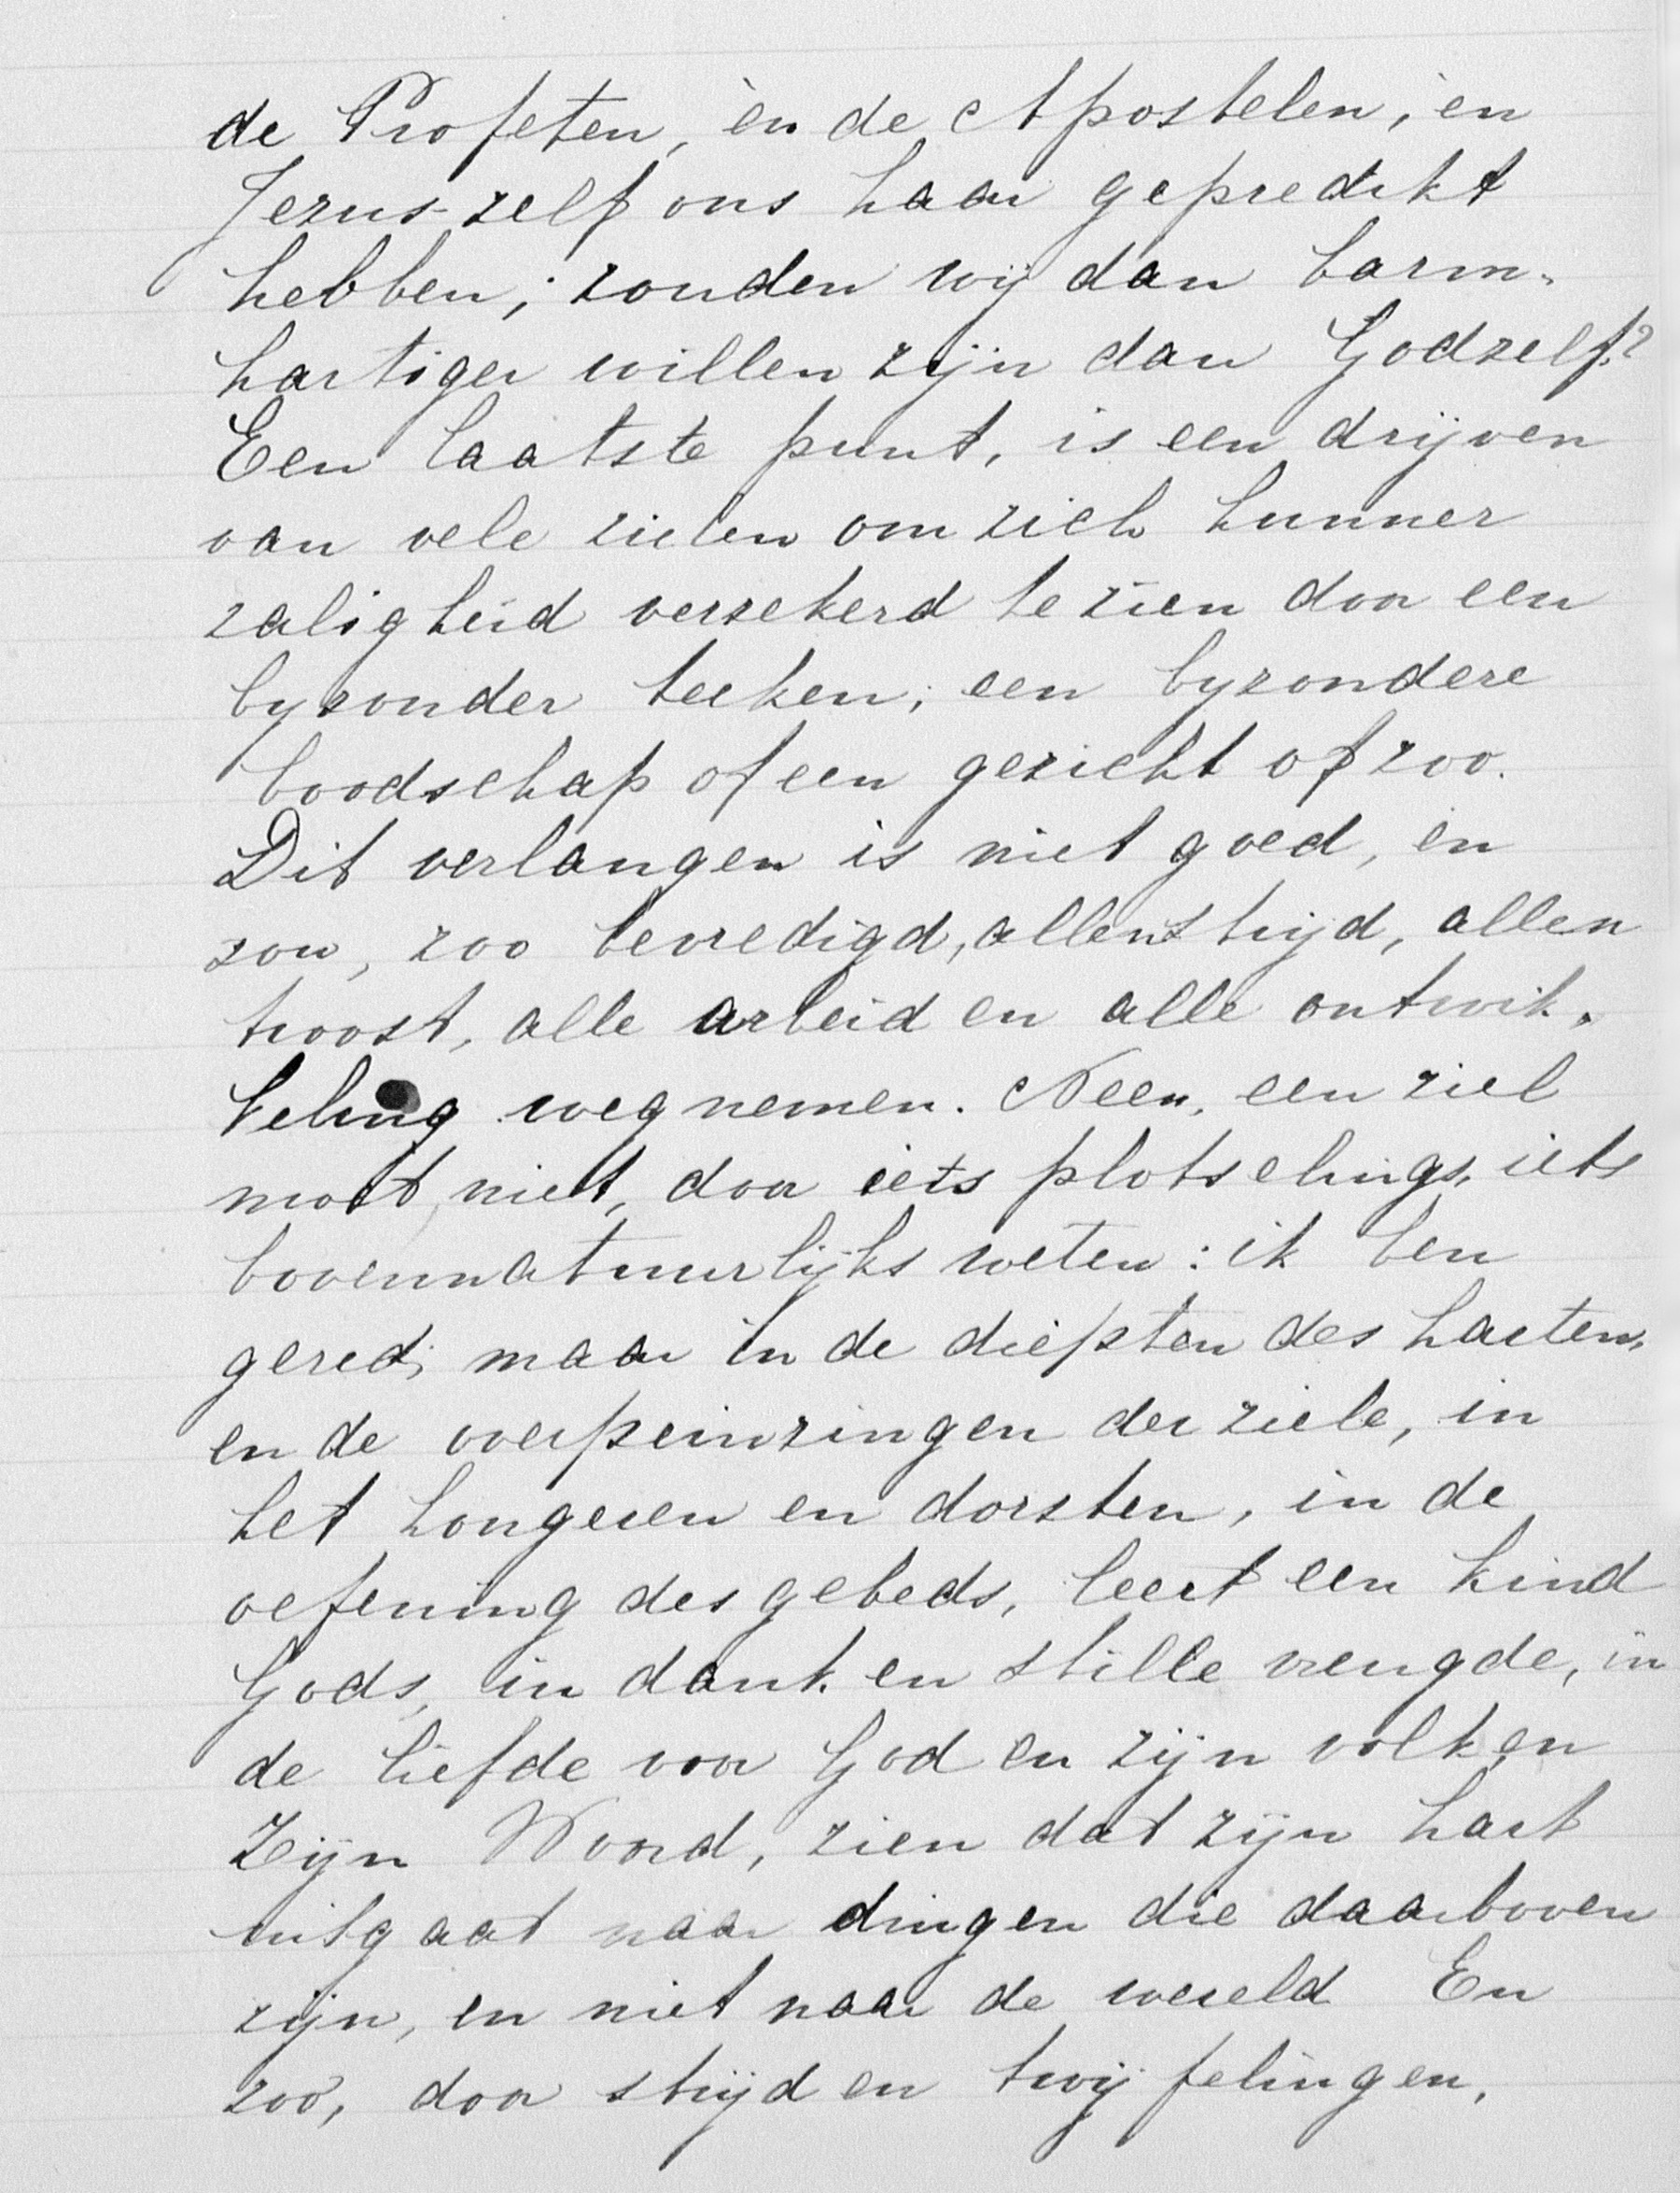 de Profeten, èn de Apostelen, èn
Jezus zelf ons haar gepredikt
hebben; zouden wij dan barm-
hartiger willen zijn dan Godzelf?
Een laatste punt, is een drijven
van vele zielen om zich hunner
zaligheid verzekerd te zien door een
byzonder teeken, een byzondere
boodschap of een gezicht of zoo.
Dit verlangen is niet goed, en
zou, zoo bevredigd, allen strijd, allen
troost, alle arbeid en alle ontwik-
keling wegnemen. Neen, een ziel
moet, niet, door iets plotselings, iets
bovennatuurlijks weten: ik ben
gered; maar in de diepten des harten,
en de overpeinzingen der ziele, in
het hongeren en dorsten, in de
oefening des gebeds, leert een kind
Gods, in dank en stille vreugde, in
de liefde voor God en zijn volk, en
Zijn Woord, zien dat zijn hart
uitgaat naar dingen die daarboven
zijn, en niet naar de wereld En
zoo, door strijd en twijfelingen,